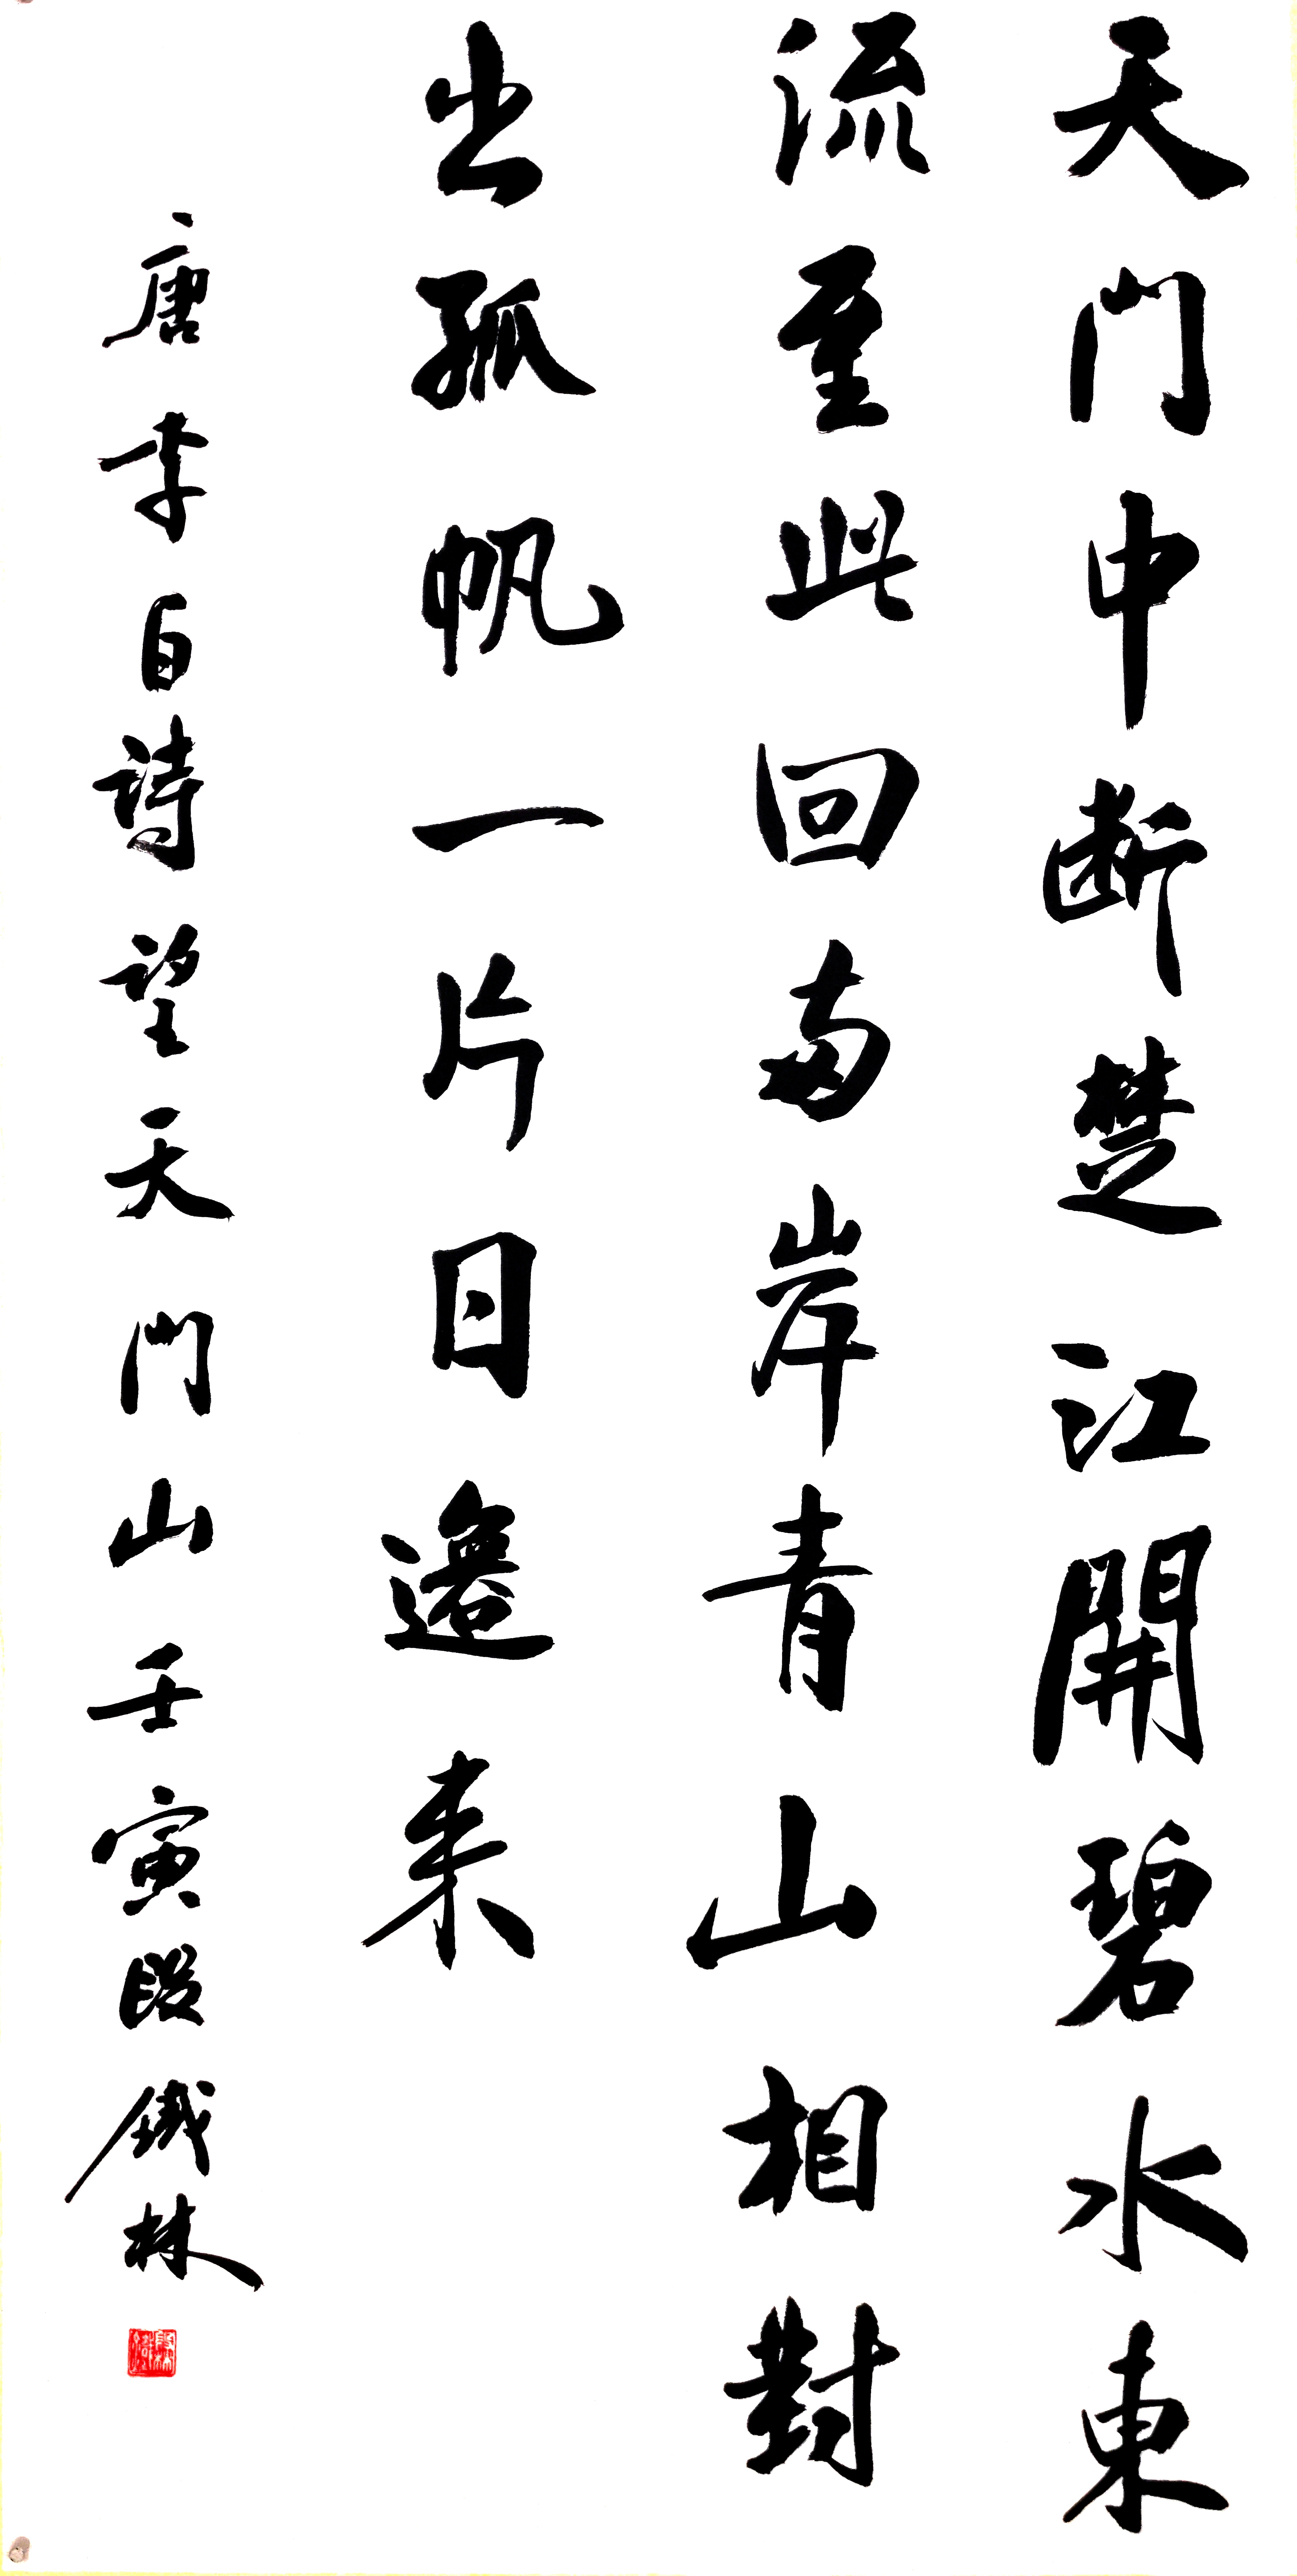 天門中断楚江開碧水東
流至此回両岸青山相對
出孤帆一片日邊来
唐李白詩望天門山壬寅段鐵林